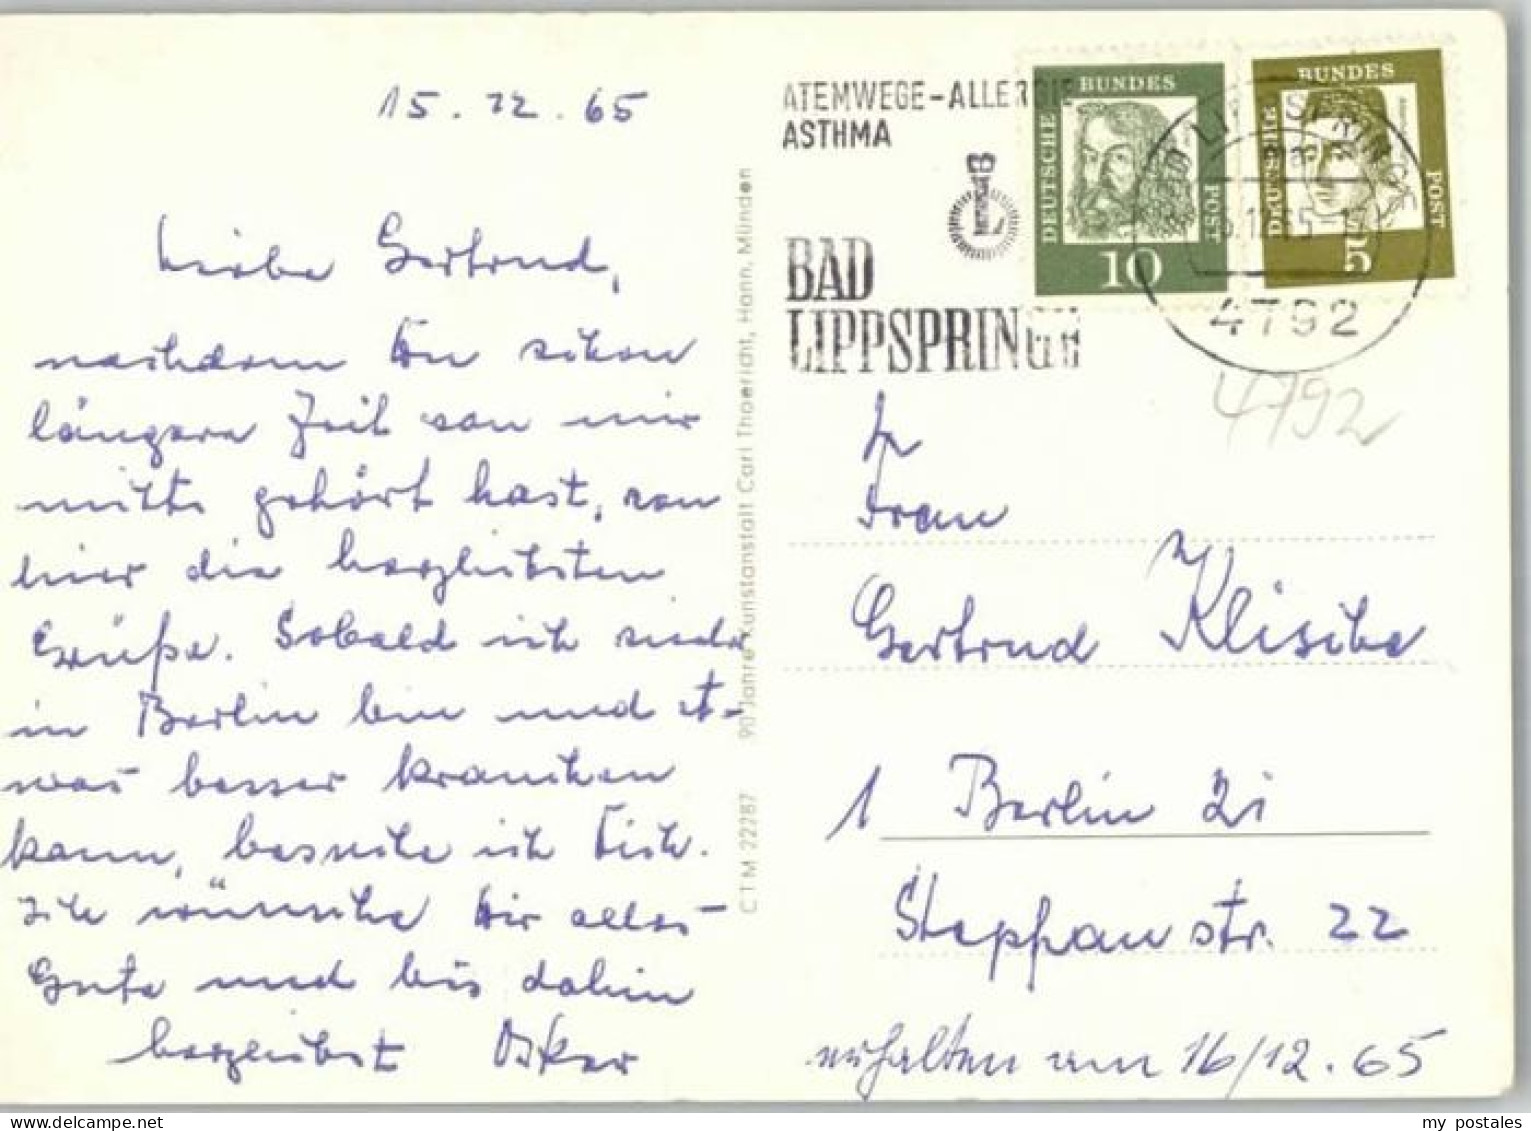 15.12.65
Liebe Gertrud,
nachdem Du schon
längere Zeit von mir
nichts gehört hast, von
hier die herzlichsten
Grüße. Sobald ich wieder
in Berlin bin und et-
was besser kraucken
kann, besuche ich Dich.
Ich wünsche Dir alles
Gute und bis dahin
herzlichst Oskar
CTM 22287 90 Jahre Kunstanstalt Carl Thoericht, Hann. Münden
ATEMWEGE-ALLERGIE
ASTHMA
BAD
LIPPSPRINGE
DEUTSCHE BUNDES POST
10
DEUTSCHE BUNDES POST
5
BAD LIPPSPRINGE
4792
4792
Frau
Gertrud Klische
1 Berlin 21
Stephanstr. 22
erhalten am 16/12.65
my postales